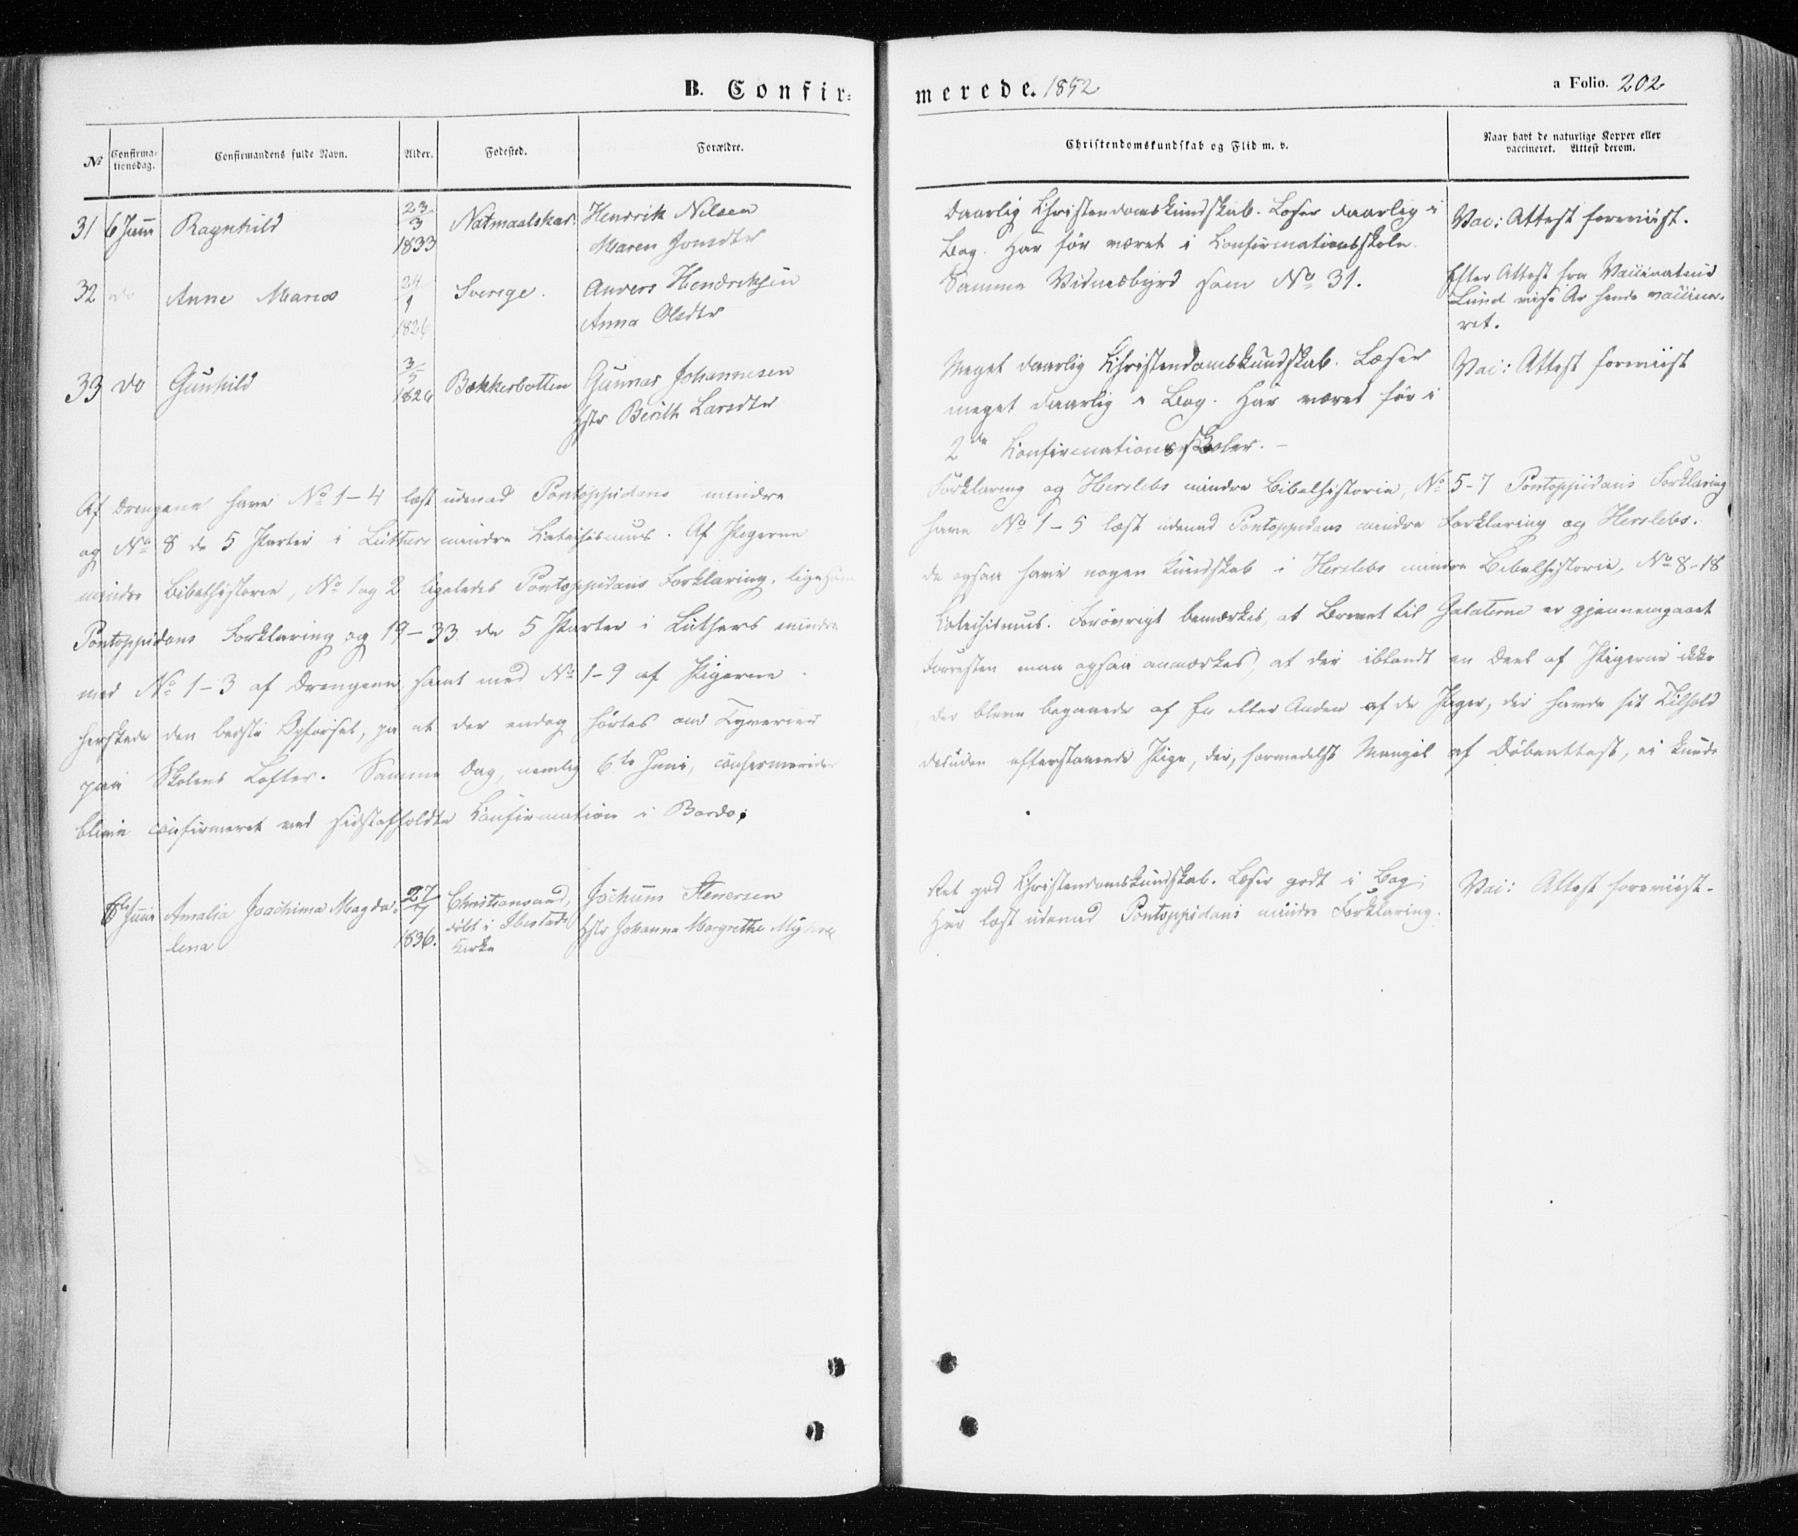 B. Confir-
merede. 1852
a Folio. 202
No
Confirma-
tionsdag.
Confirmandens fulde Navn.
Alder.
Fødested.
Forældre.
Christendomskundskab og Flid m. v.
Naar havt de naturlige Kopper eller
vaccineret. Attest derom.
31 6 Juni Ragnhild 23/3 1833 Natmaalskar Hendrik Nilsen
Maren Jonsdtr
Daarlig Christendomskundskab. Læser daarlig i
Bog. Har før været i Confirmationsskole.
Vac: Attest foreviist.
32 do Anne Marea 24/1 1826 Sverige. Anders Hendriksen
Anna Olsdtr
Samme Vidnesbyrd som No 31.
Efter Attest fra Vaccinateur
Lund vaccine-
ret.
33 do Gunhild 3/5 1826 Bækkerbotten Gunnar Johannesen
Hstr Berith Larsdtr
Meget daarlig Christendomskundskab. Læser
meget daarlig i Bog. Har været før i
2de Confirmationsskoler. –
Vac: Attest foreviist
Af Drengene have No 1-4 læst udenad Pontoppidans mindre
Forklaring og Herslebs mindre Bibelhistorie, No 5-7 Pontoppidans Forklaring
og No 8 de 5 Parter i Luthers mindre Katechismus. Af Pigerne
have No 1-5 læst udenad Pontoppidans mindre Forklaring og Herslebs
mindre Bibelhistorie, No 1 og 2 ligeledes Pontoppidans Forklaring, ligesom
de ogsaa have nogen Kundskab i Herslebs mindre Bibelhistorie, No 8-18
Pontoppidans Forklaring og 19-33 de 5 Parter i Luthers mindre
Katechismus. Forøvrigt bemærkes, at Brevet til Galaterne er gjennemgaaet
med No 1-3 af Drengene, samt med No 1-9 af Pigerne.
Forresten maa ogsaa anmærkes, at der iblandt en Deel af Pigerne ikke
herskede den bedste Opførsel, ja at der endog hørtes om Tyverier
der bleve begaaede af En eller Anden af de Piger, der havde sit Tilhold
paa Skolens Lofter. Samme Dag, nemlig 6te Juni, confirmeredes
desuden efterstaaende Pige, der, formedelst Mangel af Døbeattest, ei kunde
blive confirmeret ved sidstafholdte Confirmation i Bardo:
6te Juni Amalia Joachima Magda-
lena
27/7 1836.
Christiansand,
døbt i Ibestad
Kirke
Jochum Stenersen
Hstr Johanna Margrethe Myhre
Ret god Christendomskundskab. Læser godt i Bog.
Har læst udenad Pontoppidans mindre Forklaring.
Vac: Attest foreviist.